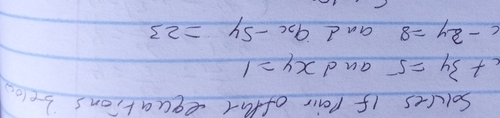 Solves if Pair of that equations below
x + 3y = 5 and xy = 1
x - 2y = 8 and 9x - 5y = 23